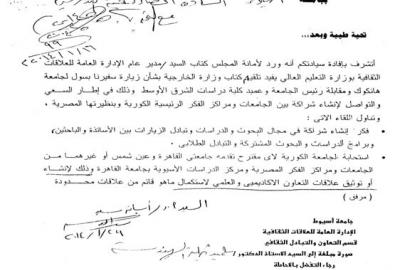 تحية طيبة وبعد...
أتشرف بإفادة سيادتكم أنه ورد لأمانة المجلس كتاب السيد/مدير عام الإدارة العامة للعلاقات
الثقافية بوزارة التعليم العالي يفيد تلقيهم كتاب وزارة الخارجية بشأن زيارة سفيرنا بسول لجامعة
هانكوك ومقابلة رئيس الجامعة وعميد كلية دراسات الشرق الأوسط وذلك في إطار السعي
والتواصل لإنشاء شراكة بين الجامعات ومراكز الفكر الرئيسية الكورية وبنظيرتها المصرية .
وتناول اللقاء الاتى :
• فكر إنشاء شراكة في مجال البحوث والدراسات وتبادل الزيارات بين الأساتذة والباحثين،
وبرامج الدراسات والبحوث المشتركة والتبادل الطلابى .
• استجابة الجامعة الكورية لاى مقترح تقدمه جامعتى القاهرة وعين شمس أو غيرهما من
الجامعات ومراكز الفكر المصرية ومركز الدراسات الآسيوية بجامعة القاهرة وذلك لإنشاء
أو توثيق علاقات التعاون الاكاديمى والعلمي لاستكمال ماهو قائم من علاقات محدودة
( مرفق )
جامعة أسيوط
الإدارة العامة للعلاقات الثقافية
قسم التعاون والتبادل الثقافي
صورة مبلغة إلى السيد الاستاذ الدكتور/
رجاء التفضل بالاحاطة